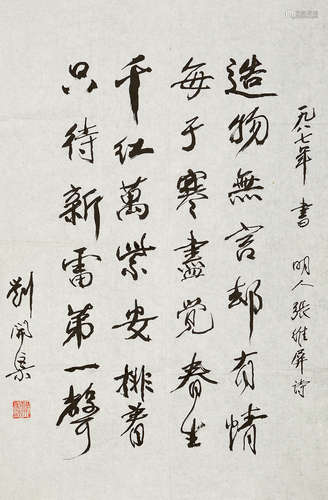 一九八七年 書 明人張維屏詩
造物無言却有情
每于寒盡覺春生
千紅萬紫安排着
只待新雷第一聲
劉開渠